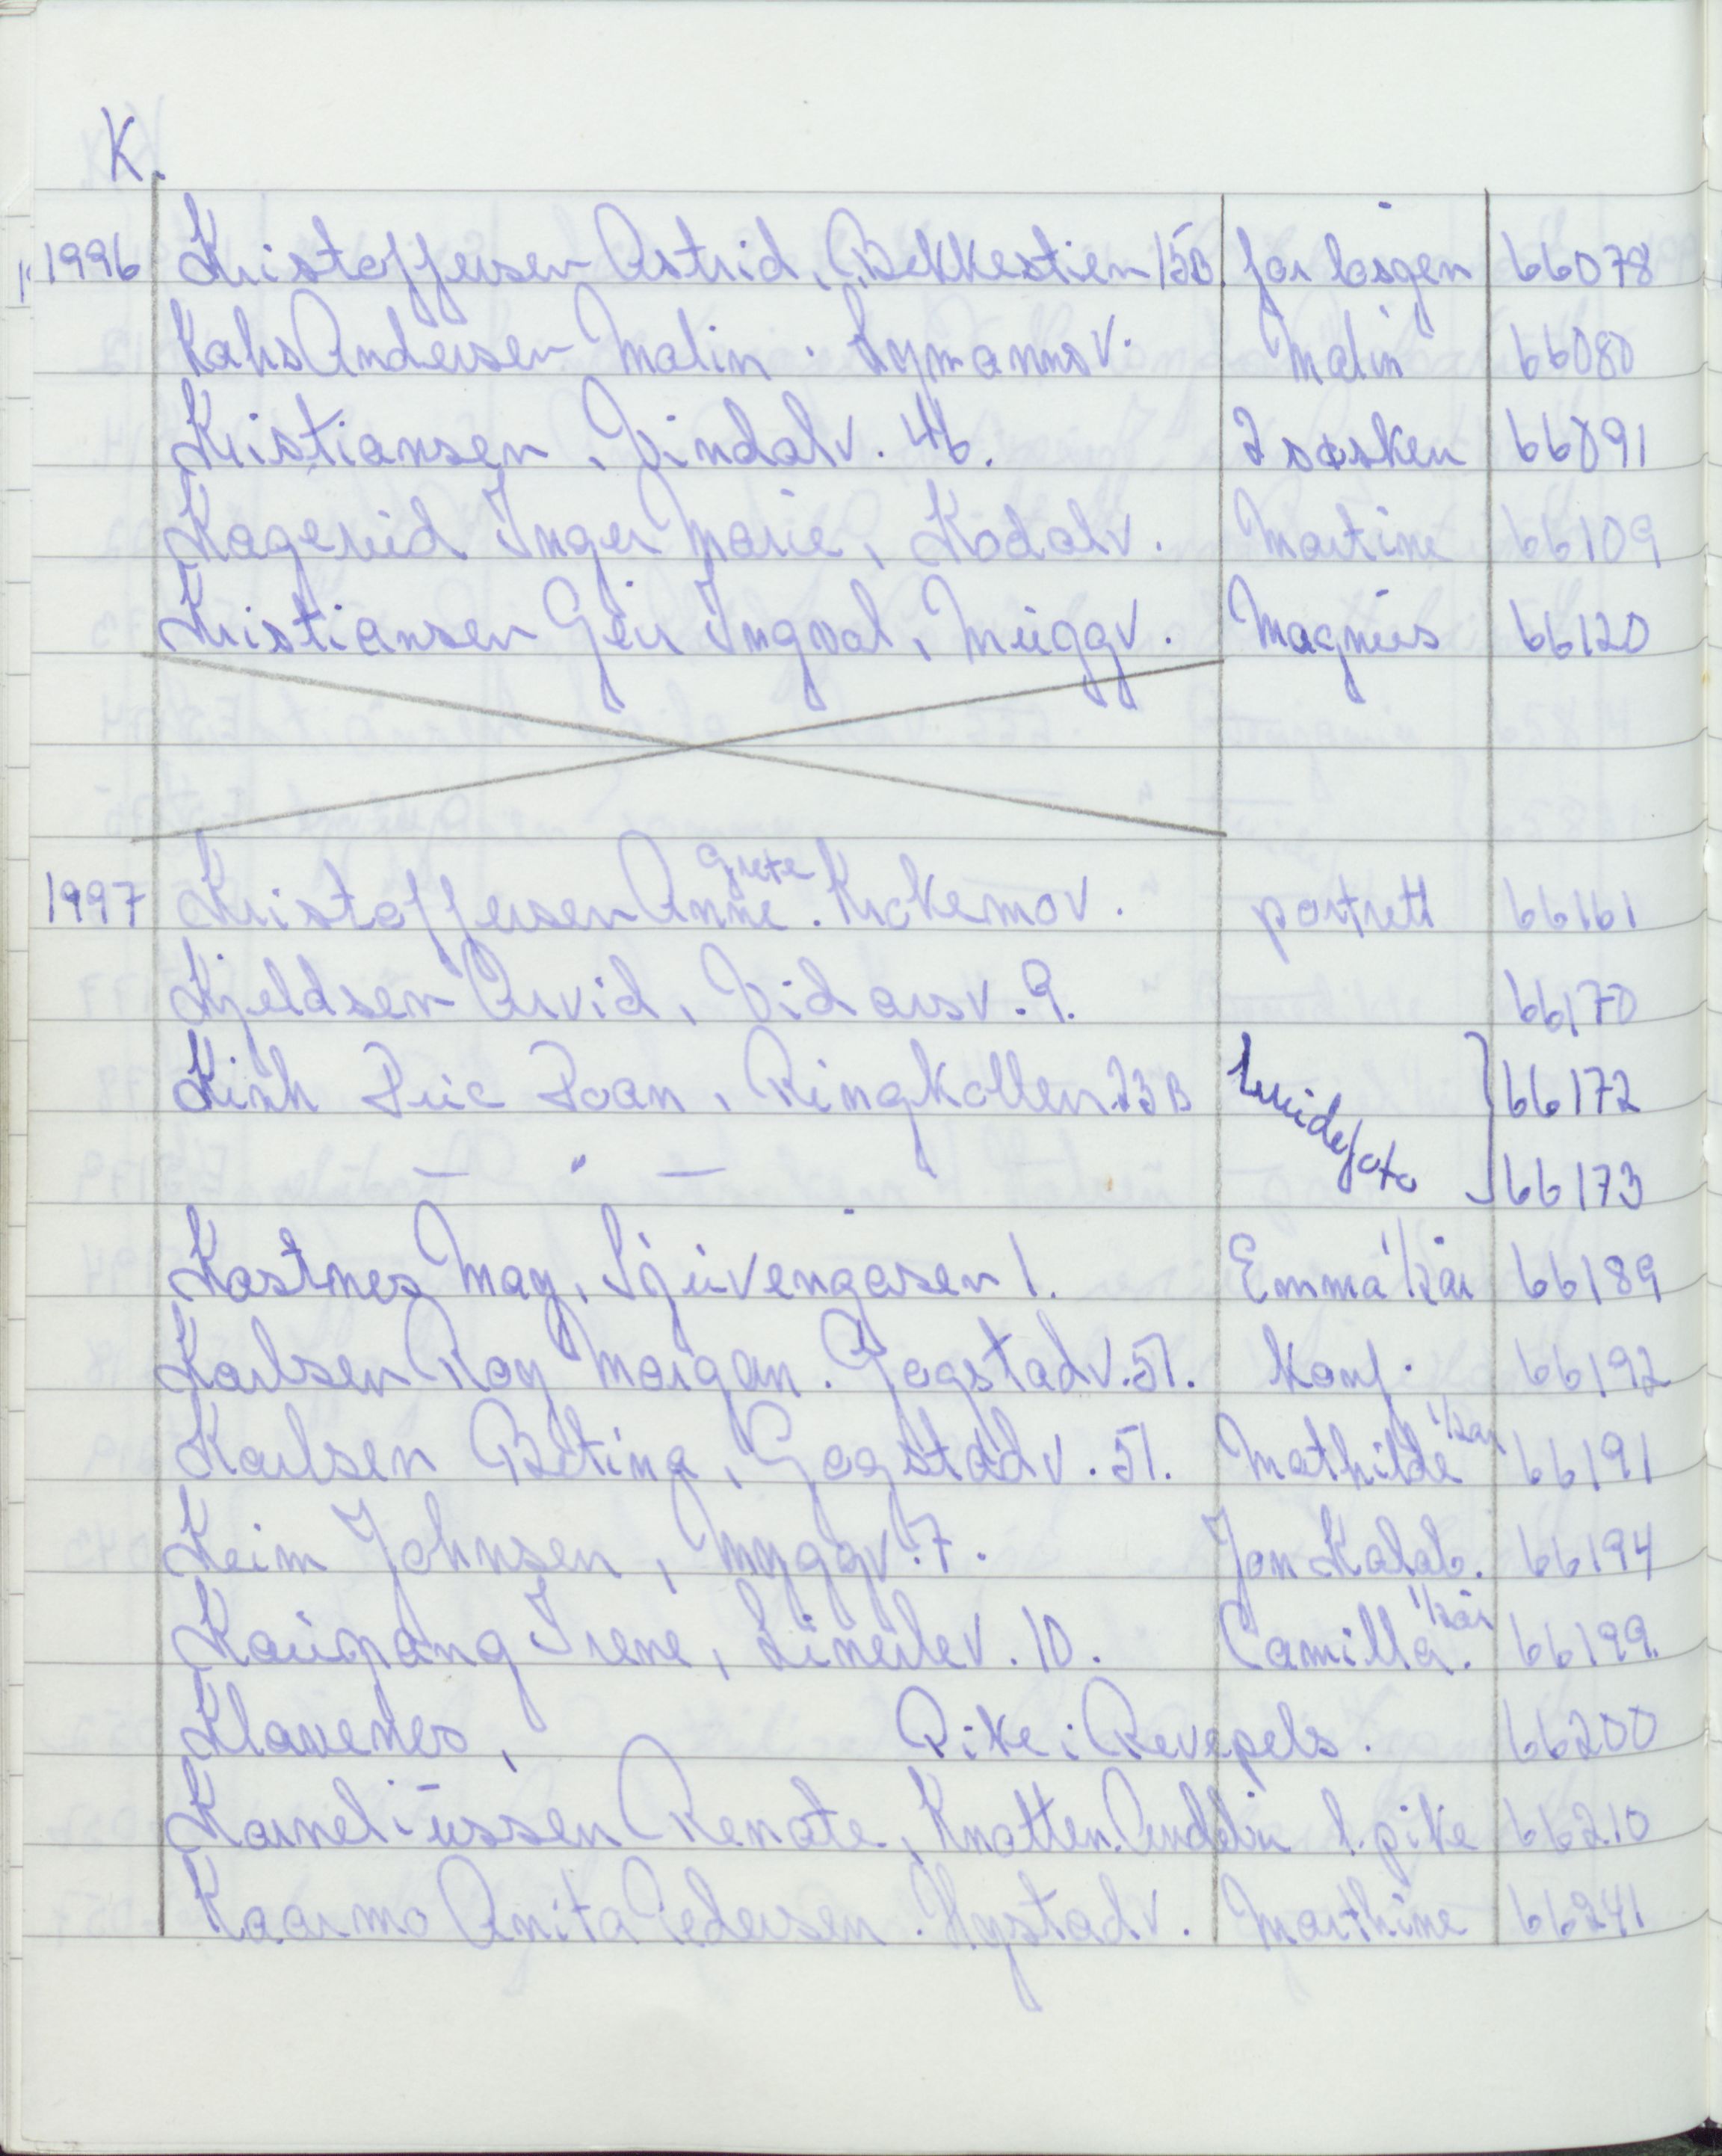 K.
1996 Kristoffersen Astrid, Bekkestien 15B. for losgen 66078
Kahs Andersen Malin. Nymanns v. Malin 66080
Kristiansen, Vindalv. 46. 2 søsken 66091
Kagerud Inger Marie, Kodalv. Martine 66109
Kristiansen Geir Ingval, Muggv. Magnus 66120
1997 Kristoffersen Anne Grete. Krokemov. portrett 66161
Kjeldsen Arvid, Vidarsv. 9. 66170
Kinh Duc Doan, Ringkollen 23B 66172
— " — 66173
Kastnes May, Sjuvengåsen 1. Emma 1/2år 66189
Karlsen Roy Morgan. Gogstadv. 51. Konf. 66192
Karlsen Betina, Gogstadv. 51. Mathilde 1/2år 66191
Keim Johnsen, Myggv. 7. Jon Kalab. 66194
Kaupang Irene, Linerlev. 10. Camilla. 1/2år 66199.
Klavenes, Pike i Revepels. 66200
Korneliussen Renate, Knatten. l. pike 66210
Kaarmo Anita Pedersen. Hystadv. Marthine 66241